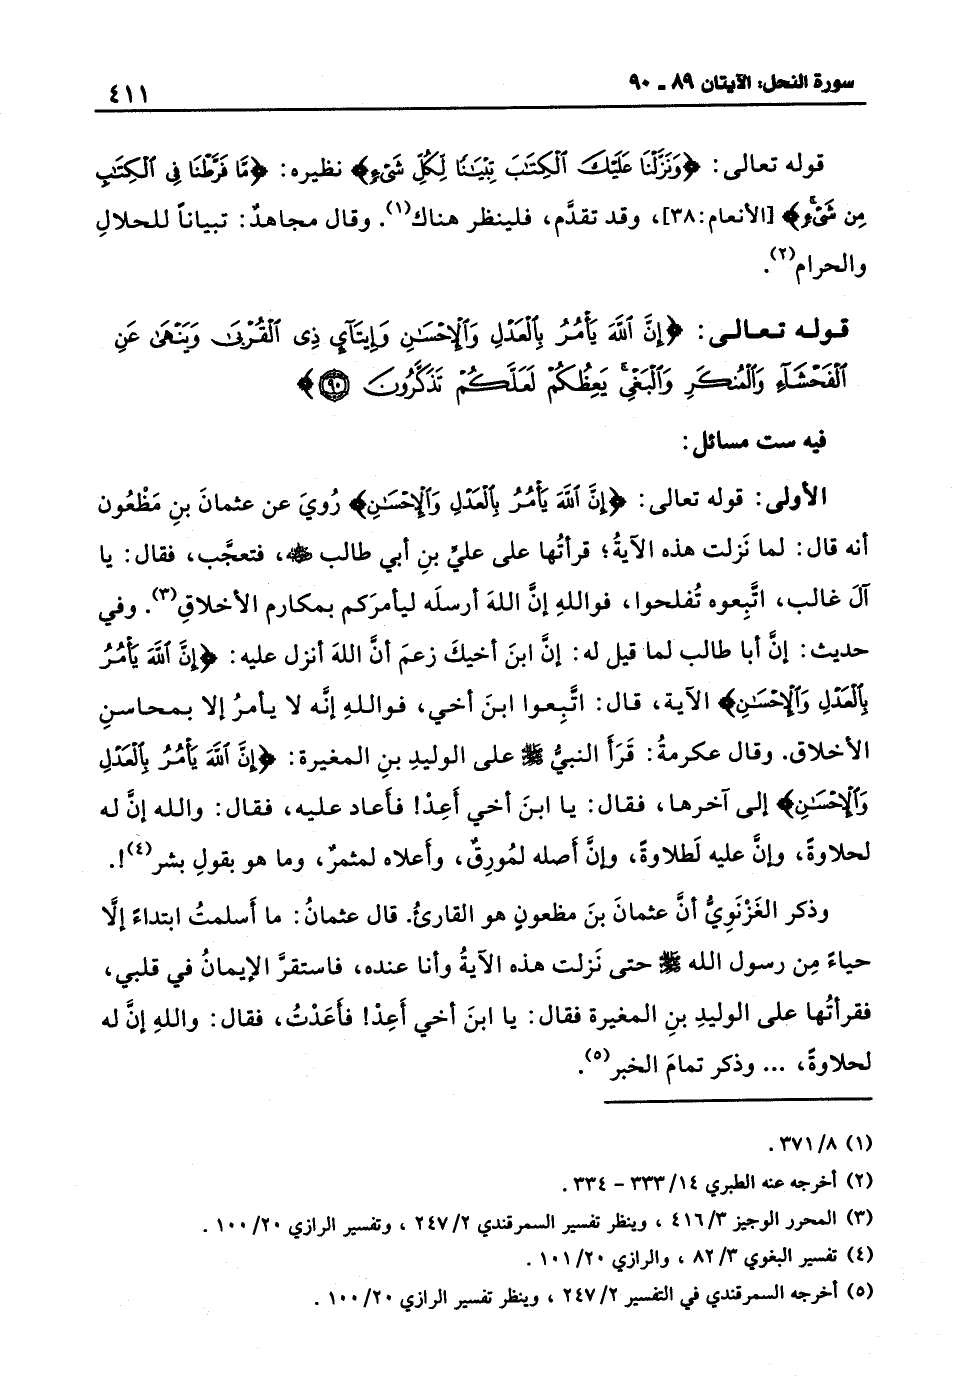 سورة النحل: الآيتان ٨٩ - ٩٠
٤١١
قوله تعالى: ﴿وَنَزَّلْنَا عَلَيْكَ الْكِتَٰبَ تِبْيَٰنًا لِّكُلِّ شَىْءٍ﴾ نظيره: ﴿مَّا فَرَّطْنَا فِى الْكِتَٰبِ
مِن شَىْءٍ﴾ [الأنعام:٣٨]، وقد تقدَّم، فلينظر هناك(١). وقال مجاهدٌ: تبياناً للحلالِ
والحرام(٢).
قوله تعالى: ﴿إِنَّ اللَّهَ يَأْمُرُ بِالْعَدْلِ وَالْإِحْسَٰنِ وَإِيتَآيِ ذِى الْقُرْبَىٰ وَيَنْهَىٰ عَنِ
الْفَحْشَآءِ وَالْمُنكَرِ وَالْبَغْىِ يَعِظُكُمْ لَعَلَّكُمْ تَذَكَّرُونَ ٩٠﴾
فيه ست مسائل:
الأولى: قوله تعالى: ﴿إِنَّ اللَّهَ يَأْمُرُ بِالْعَدْلِ وَالْإِحْسَٰنِ﴾ رُويَ عن عثمانَ بنِ مَظْعُون
أنه قال: لما نَزلت هذه الآيةُ؛ قرأتُها على عليِّ بنِ أبي طالب ﷺ، فتعجَّب، فقال: يا
آلَ غالب، اتَّبِعوه تُفلحوا، فواللهِ إنَّ اللهَ أرسلَه ليأمرَكم بمكارم الأخلاقِ(٣). وفي
حديث: إنَّ أبا طالب لما قيل له: إنَّ ابنَ أخيكَ زعمَ أنَّ اللهَ أنزل عليه: ﴿إِنَّ اللَّهَ يَأْمُرُ
بِالْعَدْلِ وَالْإِحْسَٰنِ﴾ الآية، قال: اتَّبِعوا ابنَ أخي، فواللهِ إنَّه لا يأمرُ إلا بمحاسنِ
الأخلاق. وقال عكرمةُ: قَرَأَ النبيُّ ﷺ على الوليدِ بنِ المغيرة: ﴿إِنَّ اللَّهَ يَأْمُرُ بِالْعَدْلِ
وَالْإِحْسَٰنِ﴾ إلى آخرها، فقال: يا ابنَ أخي أَعِدْ! فأعاد عليه، فقال: والله إنَّ له
لحلاوةً، وإنَّ عليه لَطلاوةً، وإنَّ أصله لمُورِقٌ، وأعلاه لمثمرٌ، وما هو بقولِ بشر(٤)!.
وذكر الغَزْنَوِيُّ أنَّ عثمانَ بنَ مظعونٍ هو القارئُ. قال عثمانُ: ما أسلمتُ ابتداءً إلَّا
حياءً مِن رسول الله ﷺ حتى نَزلت هذه الآيةُ وأنا عنده، فاستقرَّ الإيمانُ في قلبي،
فقرأتُها على الوليدِ بنِ المغيرة فقال: يا ابنَ أخي أَعِدْ! فأَعَدْتُ، فقال: واللهِ إنَّ له
لحلاوةً، ... وذكر تمامَ الخبر(٥).
(١) ٣٧١/٨ .
(٢) أخرجه عنه الطبري ٣٣٣/١٤ - ٣٣٤ .
(٣) المحرر الوجيز ٤١٦/٣ ، وينظر تفسير السمرقندي ٢٤٧/٢ ، وتفسير الرازي ١٠٠/٢٠ .
(٤) تفسير البغوي ٨٢/٣ ، والرازي ١٠١/٢٠ .
(٥) أخرجه السمرقندي في التفسير ٢٤٧/٢ ، وينظر تفسير الرازي ١٠٠/٢٠ .